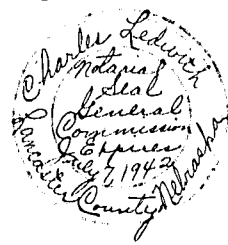 Charles Ledwith
Notarial
Seal
General
Commission
Expires
July 7, 1942
Lancaster County Nebraska